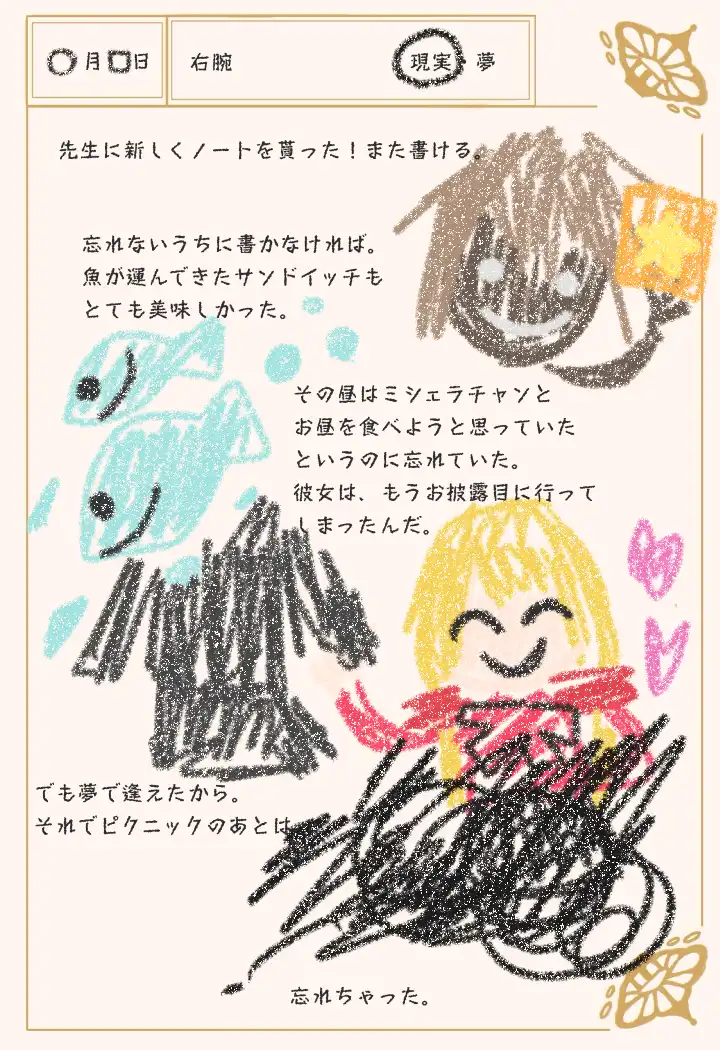 ○月□日
右腕
現実・夢
先生に新しくノートを貰った！また書ける。
忘れないうちに書かなければ。
魚が運んできたサンドイッチも
とても美味しかった。
その昼はミシェラチャンと
お昼を食べようと思っていた
というのに忘れていた。
彼女は、もうお披露目に行って
しまったんだ。
でも夢で逢えたから。
それでピクニックのあとは
忘れちゃった。